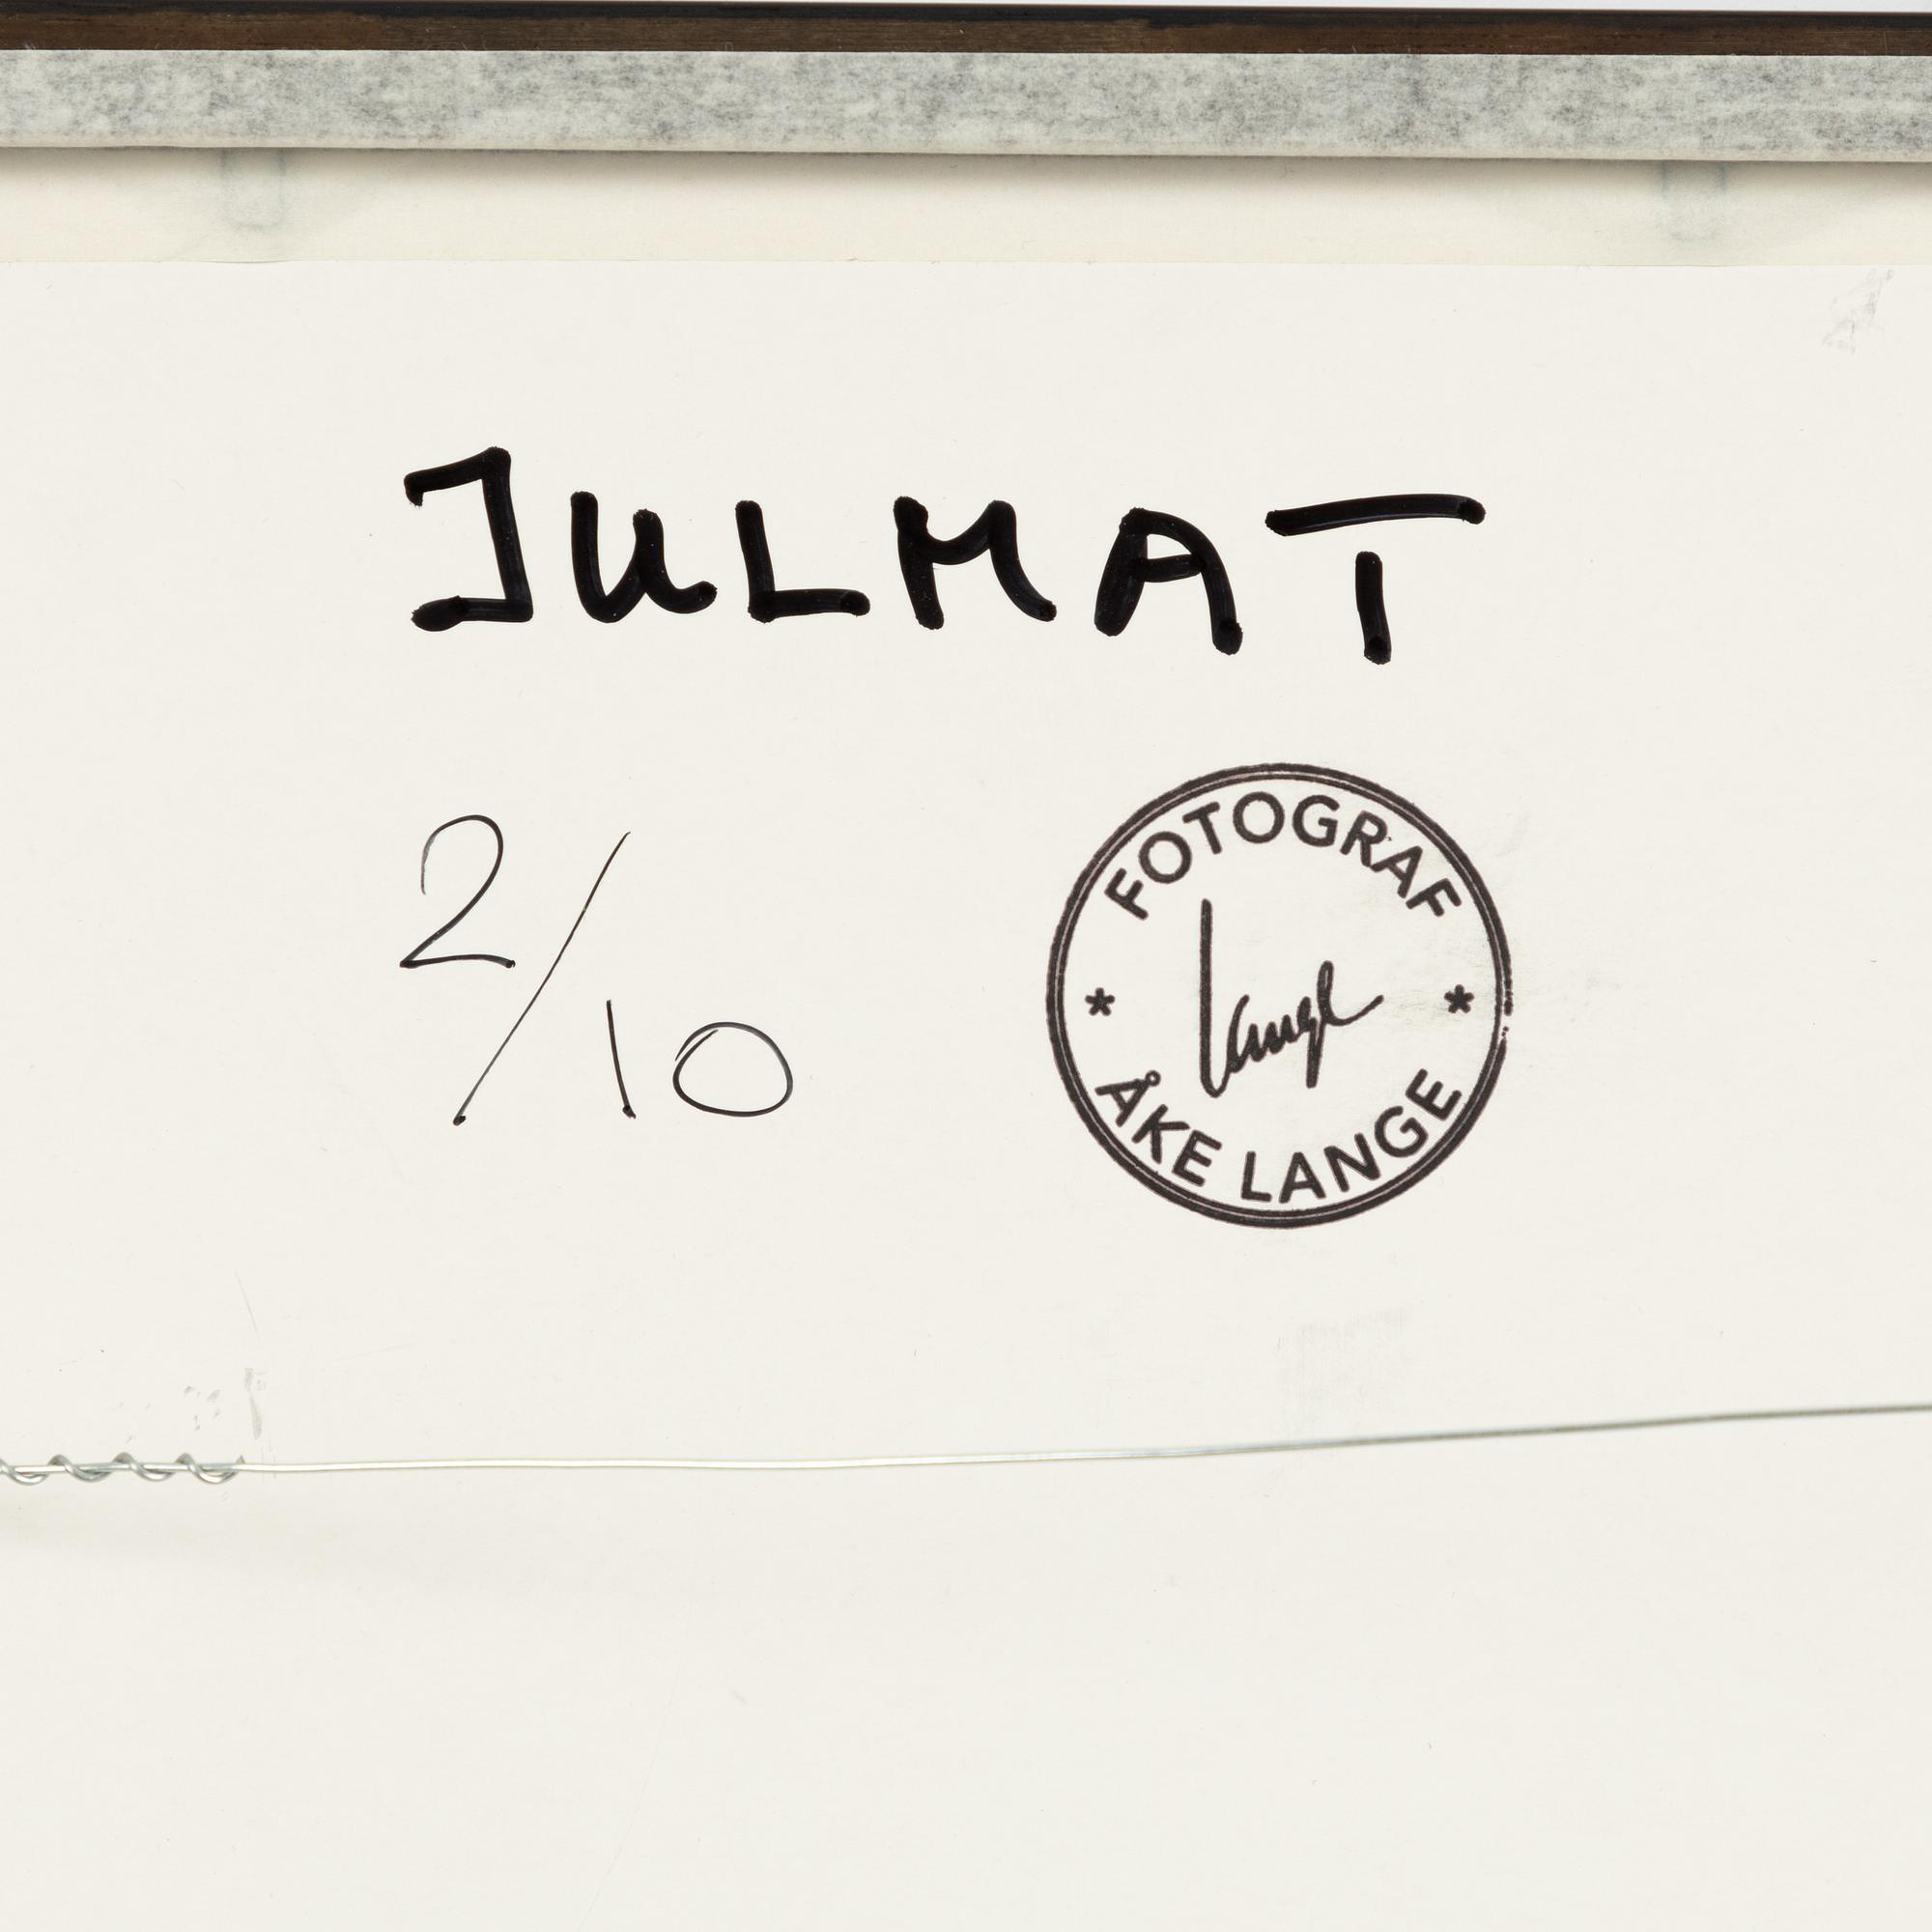 JULMAT
2/10
FOTOGRAF
* Lange *
ÅKE LANGE